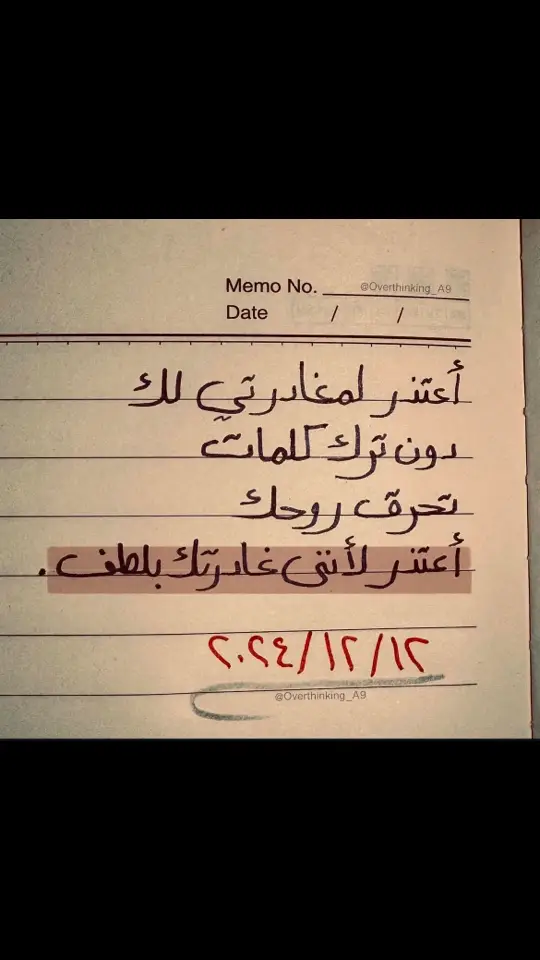 Memo No. @Overthinking_A9
Date / /
أعتذر لمغادرتي لك
دون ترك كلمات
تحرق روحك
أعتذر لأنني غادرتك بلطف.
٢٠٢٤/١٢/١٢
@Overthinking_A9